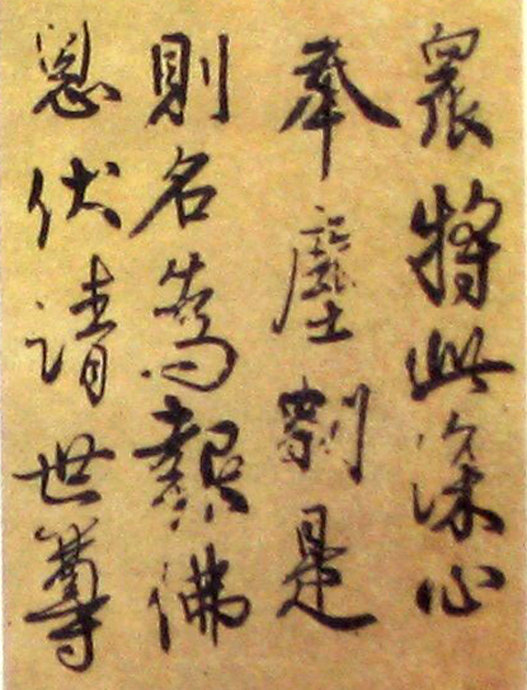 眾將此深心
奉塵刹是
則名為報佛
恩伏請世尊